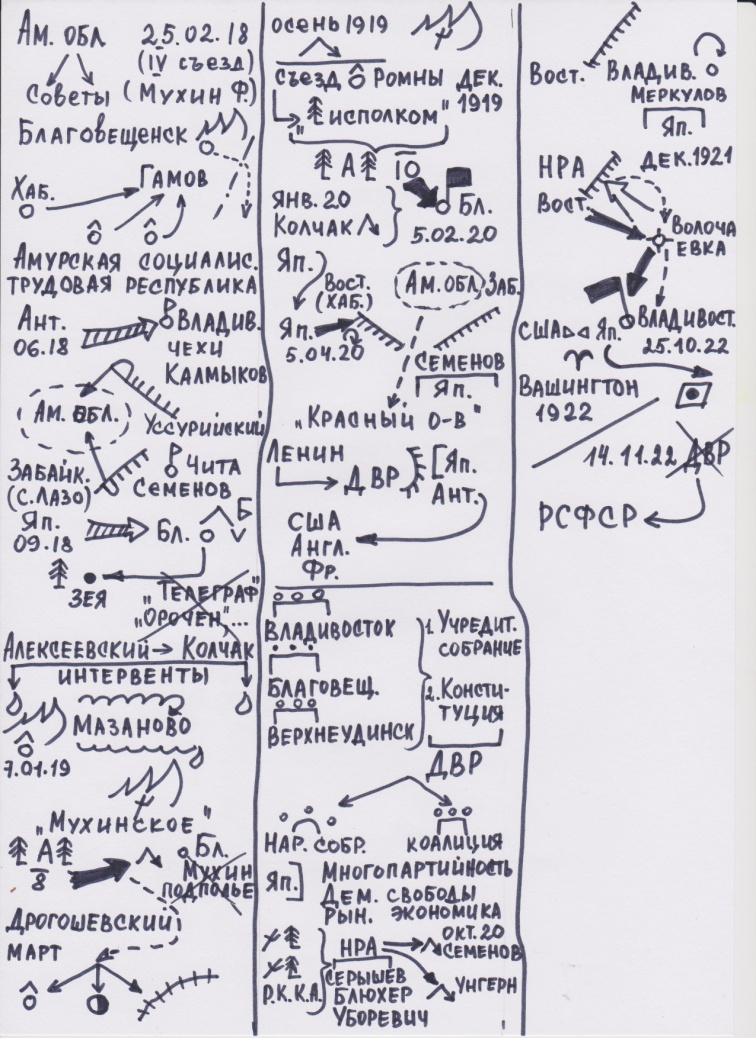 Ам. обл 25.02.18
(IV съезд)
Советы (Мухин Ф.)
Благовещенск
Хаб. Гамов
Амурская социалис.
трудовая республика
Ант. Владив.
06.18 чехи
Калмыков
Ам. обл.
Уссурийский
Забайк. Чита
(С. Лазо) Семенов
Яп. Бл. Б
09.18
Зея "Телеграф"
"Орочен,...
Алексеевский → Колчак
интервенты
Мазаново
7.01.19
"Мухинское"
А Бл.
8 Мухин
подполье
Дрогошевский
март
осень 1919
съезд Ромны дек.
1919
"исполком"
А 10
янв. 20 Бл.
Колчак
5.02.20
Яп.
Вост. Ам. обл. Заб.
(Хаб.)
Яп.
5.04.20
Семенов
Яп.
"Красный о-в"
Ленин
ДВР Яп.
Ант.
США
Англ.
Фр.
Владивосток
Благовещ.
Верхнеудинск
1. Учредит.
собрание
2. Консти-
туция
ДВР
Нар. собр. коалиция
Яп. Многопартийность
Дем. свободы
Рын. экономика
НРА окт. 20
Семенов
Р.К.К.А. Серышев Унгерн
Блюхер
Уборевич
Вост. Владив.
Меркулов
Яп.
НРА дек. 1921
Вост.
Волоча
евка
США Яп. Владивост.
25.10.22
Вашингтон
1922
14.11.22 ДВР
РСФСР